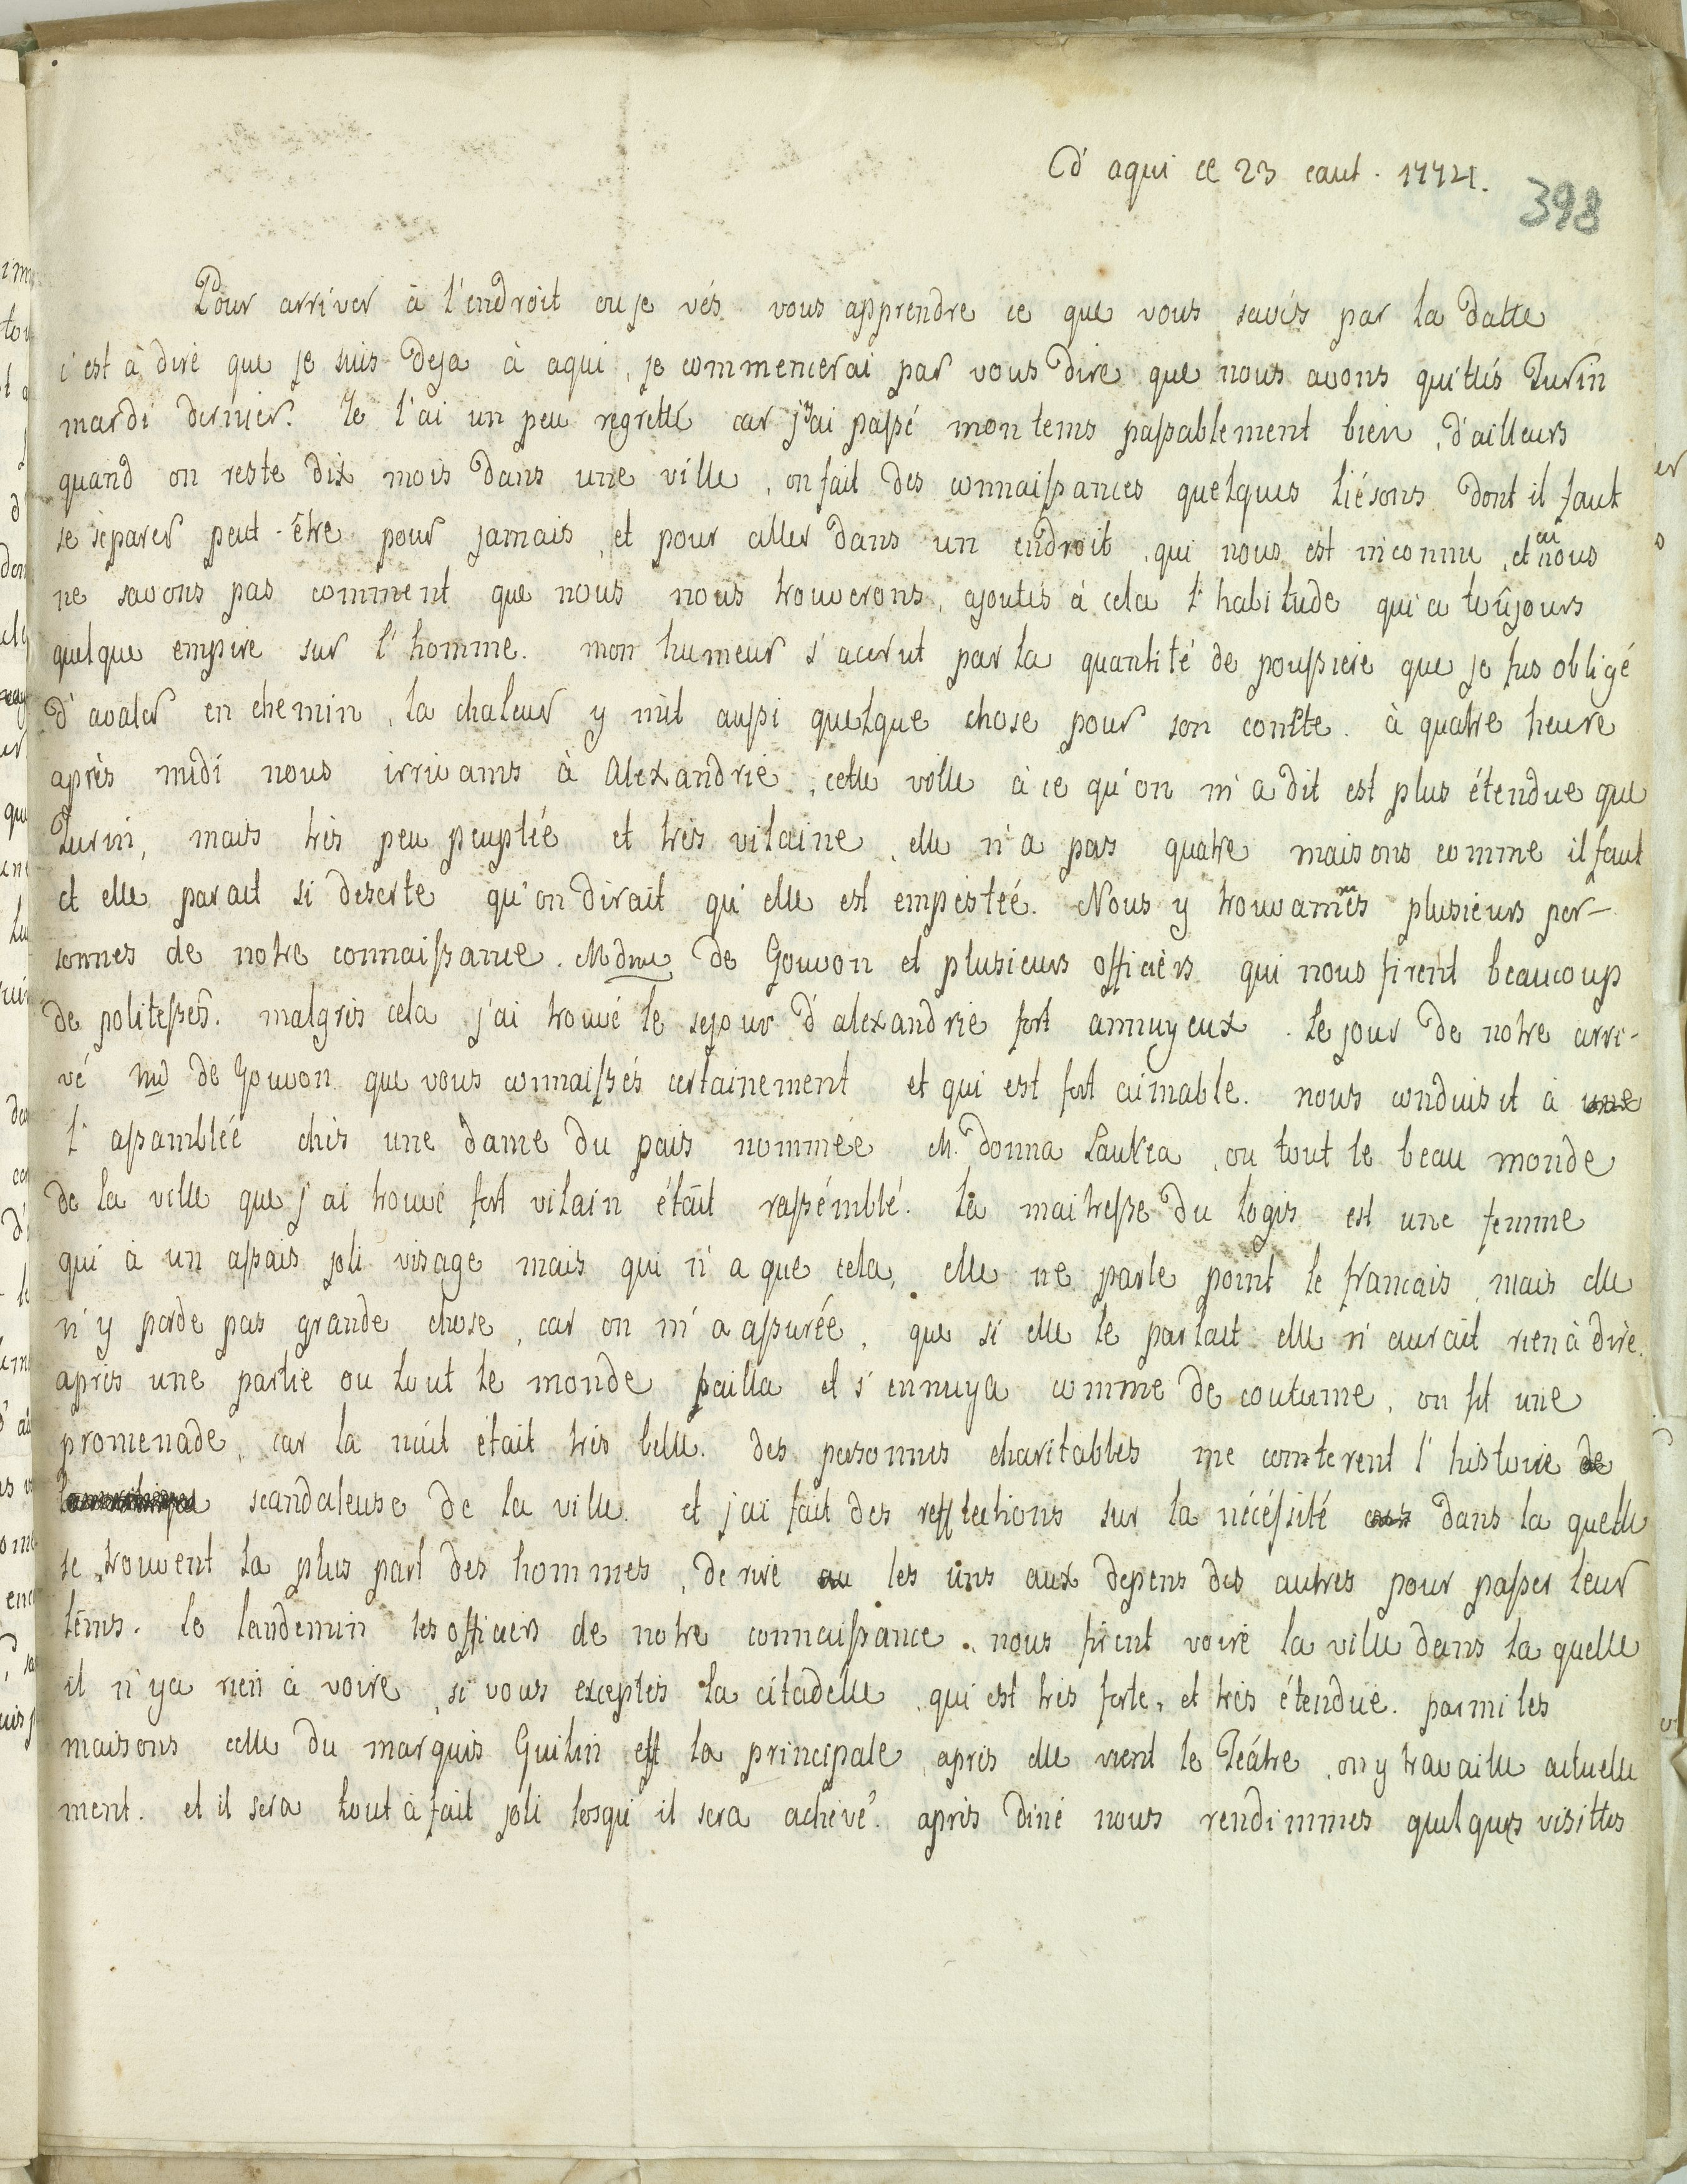 d'aqui ce 23 aout. 1774.
398
Pour arriver à l'endroit ou je vés vous apprendre ce que vous savés par la datte
c'est à dire que je suis deja à aqui, je commencerai par vous dire que nous avons quittés Turin
mardi dernier. Je l'ai un peu regretté car j'y ai passé mon tems passablement bien, d'ailleurs
quand on reste dix mois dans une ville, on fait des connaissances quelques liésons dont il faut
se séparer peut-être pour jamais, et pour aller dans un endroit, qui nous est inconnu, et ou nous
ne savons pas comment que nous nous trouverons, ajoutés à cela l'habitude qui a toûjours
quelque empire sur l'homme. mon humeur s'acerut par la quantité de poussiere que je fus obligé
d'avaler en chemin, la chaleur y mit aussi quelque chose pour son conte. à quatre heure
après midi nous irrivams à Alexandrie, cette ville à ce qu'on m'a dit est plus étendue que
Turin, mais très peu peuplée et très vilaine, elle n'a pas quatre maisons comme il faut
et elle parait si deserte qu'on dirait qu'elle est empestée. Nous y trouvammes plusieurs per-
sonnes de notre connaissance. Mdme de Gouvon et plusieurs officiers qui nous firent beaucoup
de politesses. malgrès cela j'ai trouvé le sejour d'alexandrie fort annuyeux. le jour de notre arri-
vé Md de Gouvon que vous connaissés certainement et qui est fort aimable. nous conduisit à une
l'assamblée chés une dame du païs nommée M. donna, ou tout le beau monde
de la ville que j'ai trouvé fort vilain étäit rassémblé. la maitresse du logis est une femme
qui à un assais joli visage mais qui n'a que cela, elle ne parle point le francais, mais elle
n'y perde pas grande chose, car on m'a assurée, que si elle le parlait elle n'aurait rien à dire.
après une partie ou tout le monde bailla et s'ennuya comme de coutume, on fit une
promenade, car la nuit était très belle. des personnes charitables me conterent l'histoire de
scandaleuse de la ville. et j'ai fait des refflections sur la nécéssité dans la quelle
se trouvent la plus part des hommes, de rire au les uns aux depens des autres pour passer leur
tems. le landemin les officiers de notre connaissance, nous firent voire la ville dans la quelle
il n'y a rien à voire, si vous exceptés la citadelle, qui est très forte, et très étendue. parmi les
maisons celle du marquis Guilin est la principale, après elle vient le Teâtre, on y travaille actuelle
ment. et il sera tout à fait joli losqu'il sera achevé. après diné nous rendimmes quelques visittes